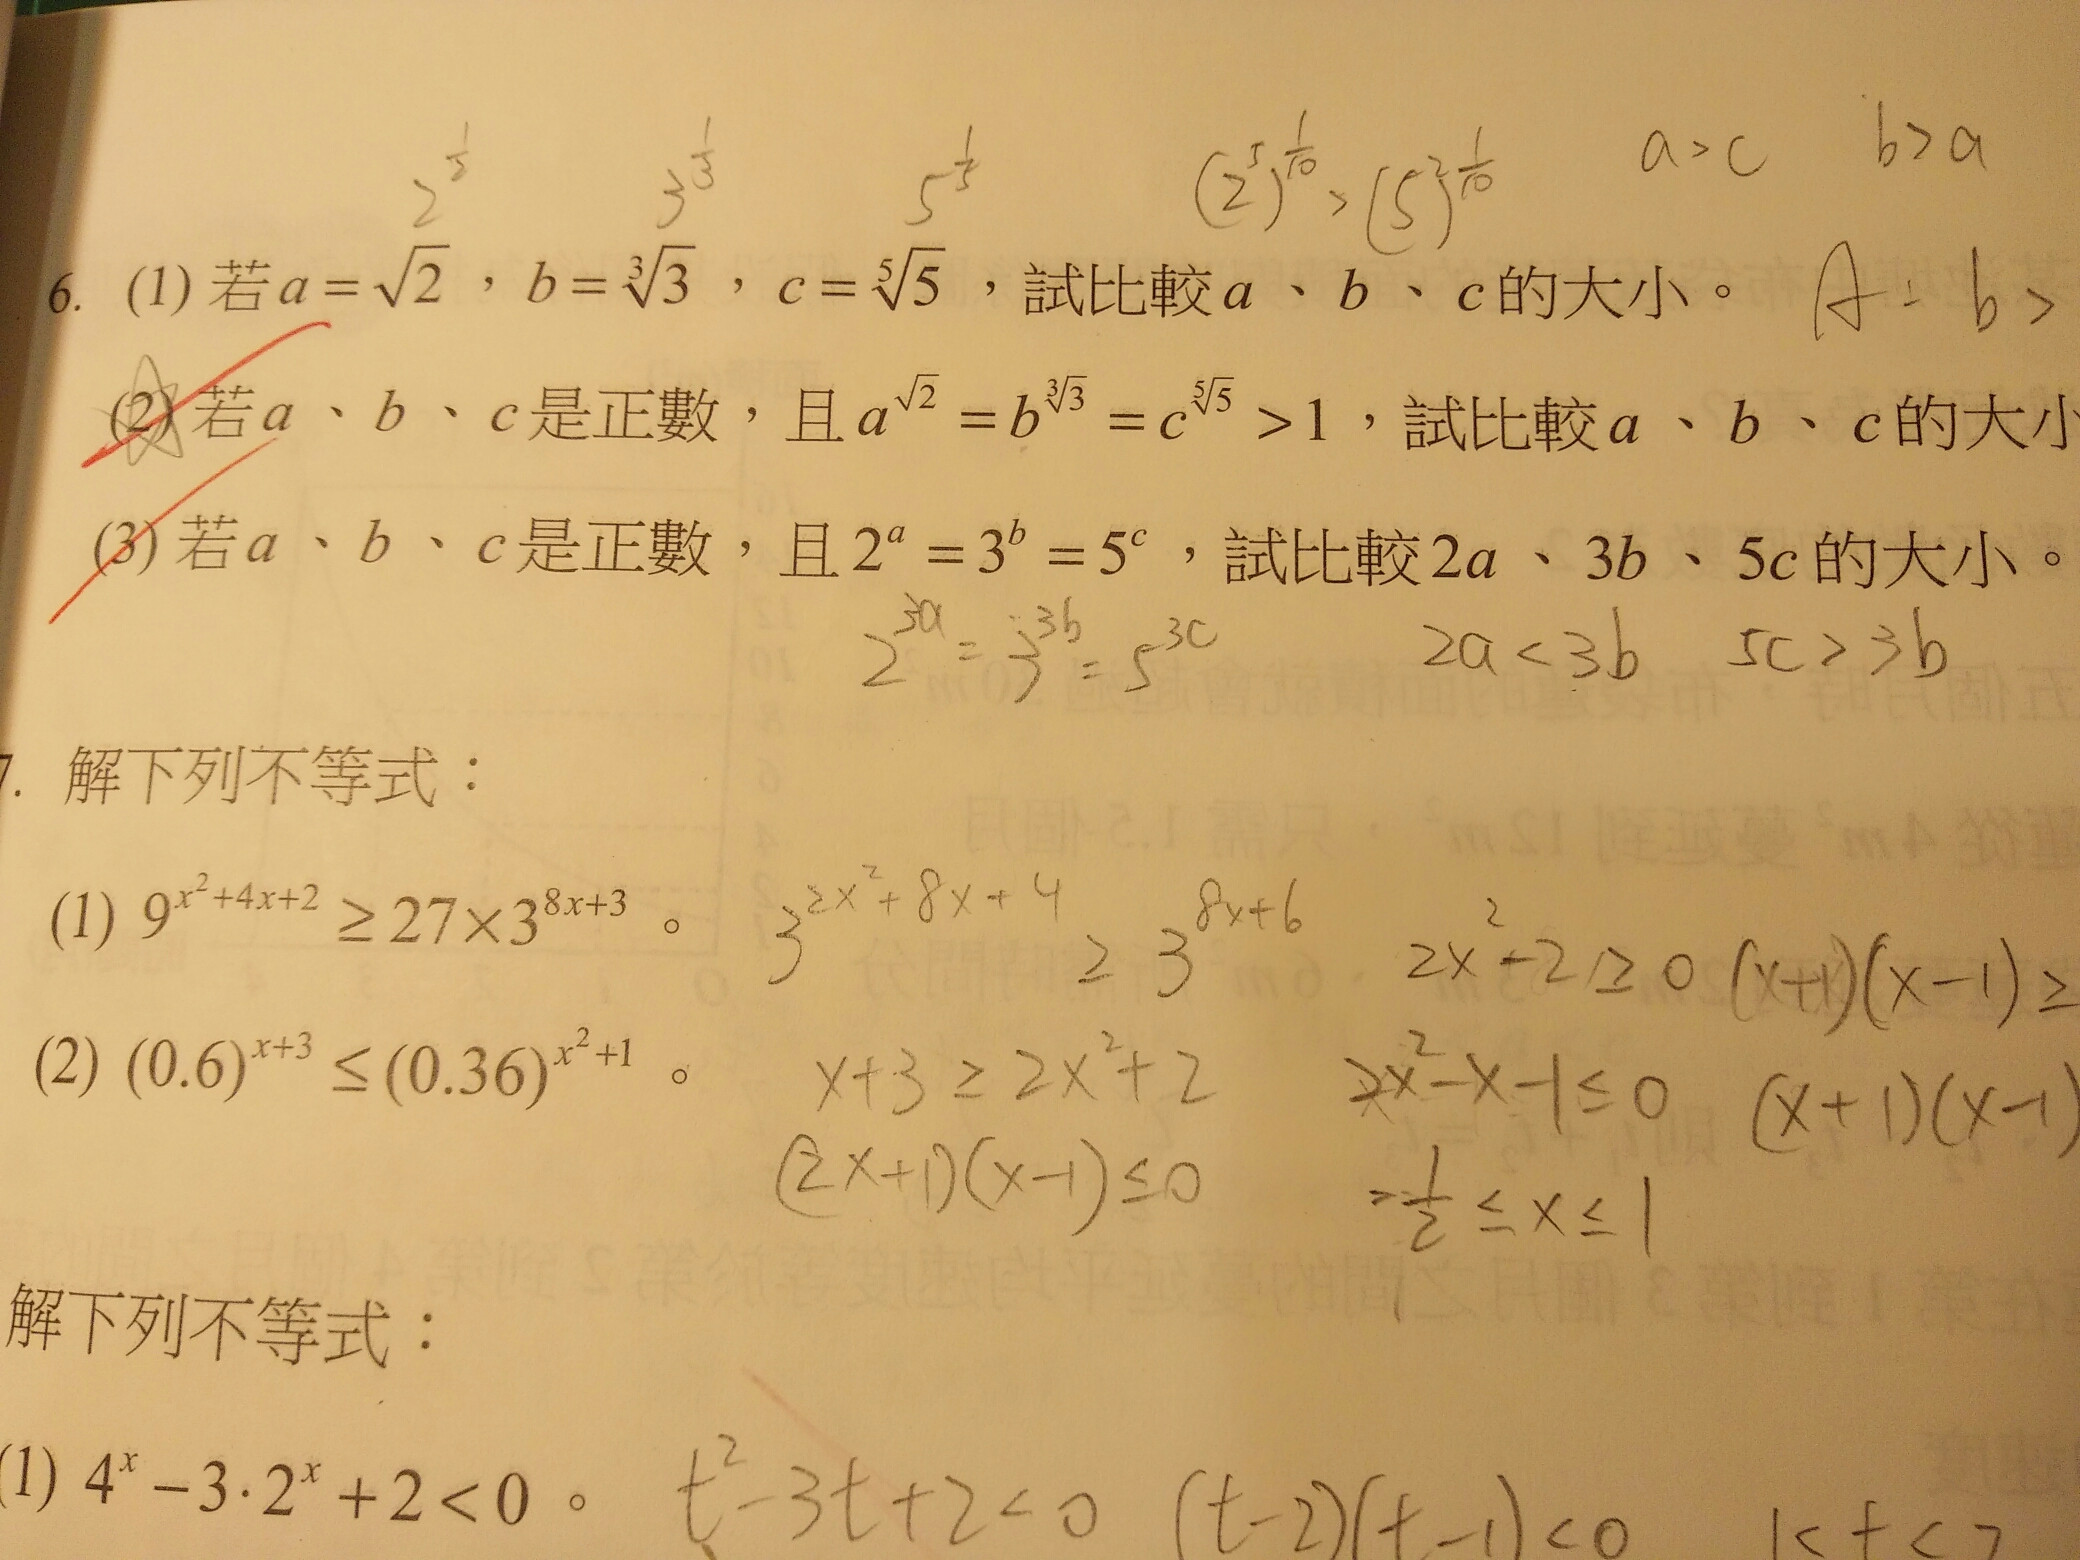 2^{\frac{1}{2}} 3^{\frac{1}{3}} 5^{\frac{1}{5}} (2^5)^{\frac{1}{10}} > (5^2)^{\frac{1}{10}} a>c b>a
6. (1) 若 a = √2 , b = ∛3 , c = ⁵√5 ,試比較 a 、 b 、 c 的大小。 A: b >
(2) 若 a 、 b 、 c 是正數,且 a^{√2} = b^{∛3} = c^{⁵√5} > 1 ,試比較 a 、 b 、 c 的大小
(3) 若 a 、 b 、 c 是正數,且 2^a = 3^b = 5^c ,試比較 2a 、 3b 、 5c 的大小。
2^{3a} = 3^{3b} = 5^{3c} 2a < 3b 5c > 3b
7. 解下列不等式:
(1) 9^{x²+4x+2} ≥ 27×3^{8x+3} 。 3^{2x²+8x+4} ≥ 3^{8x+6} 2x²-2 ≥ 0 (x+1)(x-1) ≥
(2) (0.6)^{x+3} ≤ (0.36)^{x²+1} 。 x+3 ≥ 2x²+2 2x²-x-1 ≤ 0 (x+1)(x-1)
(2x+1)(x-1) ≤ 0 -\frac{1}{2} ≤ x ≤ 1
解下列不等式:
(1) 4^x - 3·2^x + 2 < 0 。 t²-3t+2<0 (t-2)(t-1)<0 1<t<2